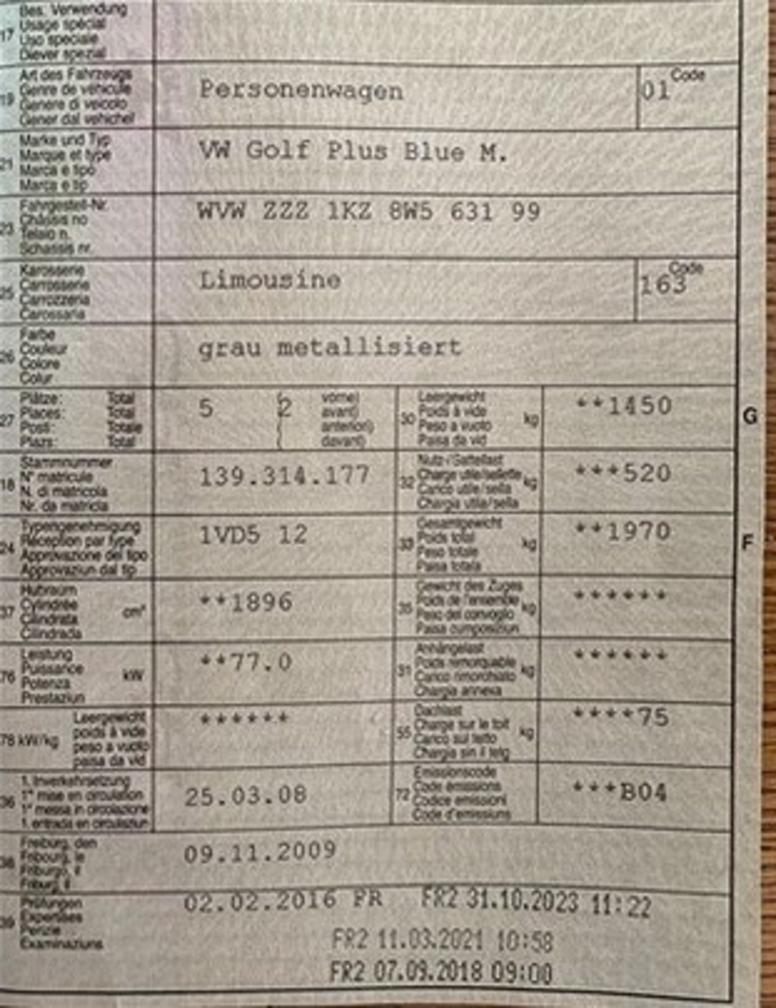 17 Bes. Verwendung
Usage spécial
Uso speciale
Diever spezial
19 Art des Fahrzeugs
Genre de véhicule
Genere di veicolo
Gener dal vehichel
Personenwagen
Code
01
21 Marke und Typ
Marque et type
Marca e tipo
Marca e tip
VW Golf Plus Blue M.
23 Fahrgestell-Nr.
Châssis no
Telaio n.
Schassis nr.
WVW ZZZ 1KZ 8W5 631 99
25 Karosserie
Carrosserie
Carrozzeria
Carossaria
Limousine
Code
163
26 Farbe
Couleur
Colore
Colur
grau metallisiert
27 Plätze: Total
Places: Total
Posti: Totale
Plazs: Total
5 (2 vorne)
avant)
anteriori)
davant)
30 Leergewicht
Poids à vide
Peso a vuoto
Paisa da vid
kg
**1450
G
18 Stammnummer
N° matricule
N. di matricola
Nr. da matricla
139.314.177
32 Nutz-/Sattellast
Charge utile/sellette
Carico utile/sella
Chargia utila/sella
kg
***520
24 Typengenehmigung
Réception par type
Approvazione del tipo
Approvaziun dal tip
1VD5 12
33 Gesamtgewicht
Poids total
Peso totale
Paisa totala
kg
**1970
F
37 Hubraum
Cylindrée
Cilindrata
Cilindrada
cm³
**1896
35 Gewicht des Zuges
Poids de l'ensemble
Peso del convoglio
Paisa cumposiziun
kg
******
76 Leistung
Puissance
Potenza
Prestaziun
kW
**77.0
31 Anhängelast
Poids remorquable
Carico rimorchiato
Chargia annexa
kg
******
78 kW/kg Leergewicht
poids à vide
peso a vuoto
paisa da vid
******
55 Dachlast
Charge sur le toit
Carico sul tetto
Chargia sin il tetg
kg
****75
36 1. Inverkehrsetzung
1re mise en circulation
1a messa in circolazione
1. entrada en circulaziun
25.03.08
72 Emissionscode
Code émissions
Codice emissioni
Code d'emissiuns
***B04
38 Freiburg, den
Fribourg, le
Friburgo, il
Friburg, il
09.11.2009
39 Prüfungen
Expertises
Perizie
Examinaziuns
02.02.2016 FR FR2 31.10.2023 11:22
FR2 11.03.2021 10:58
FR2 07.09.2018 09:00